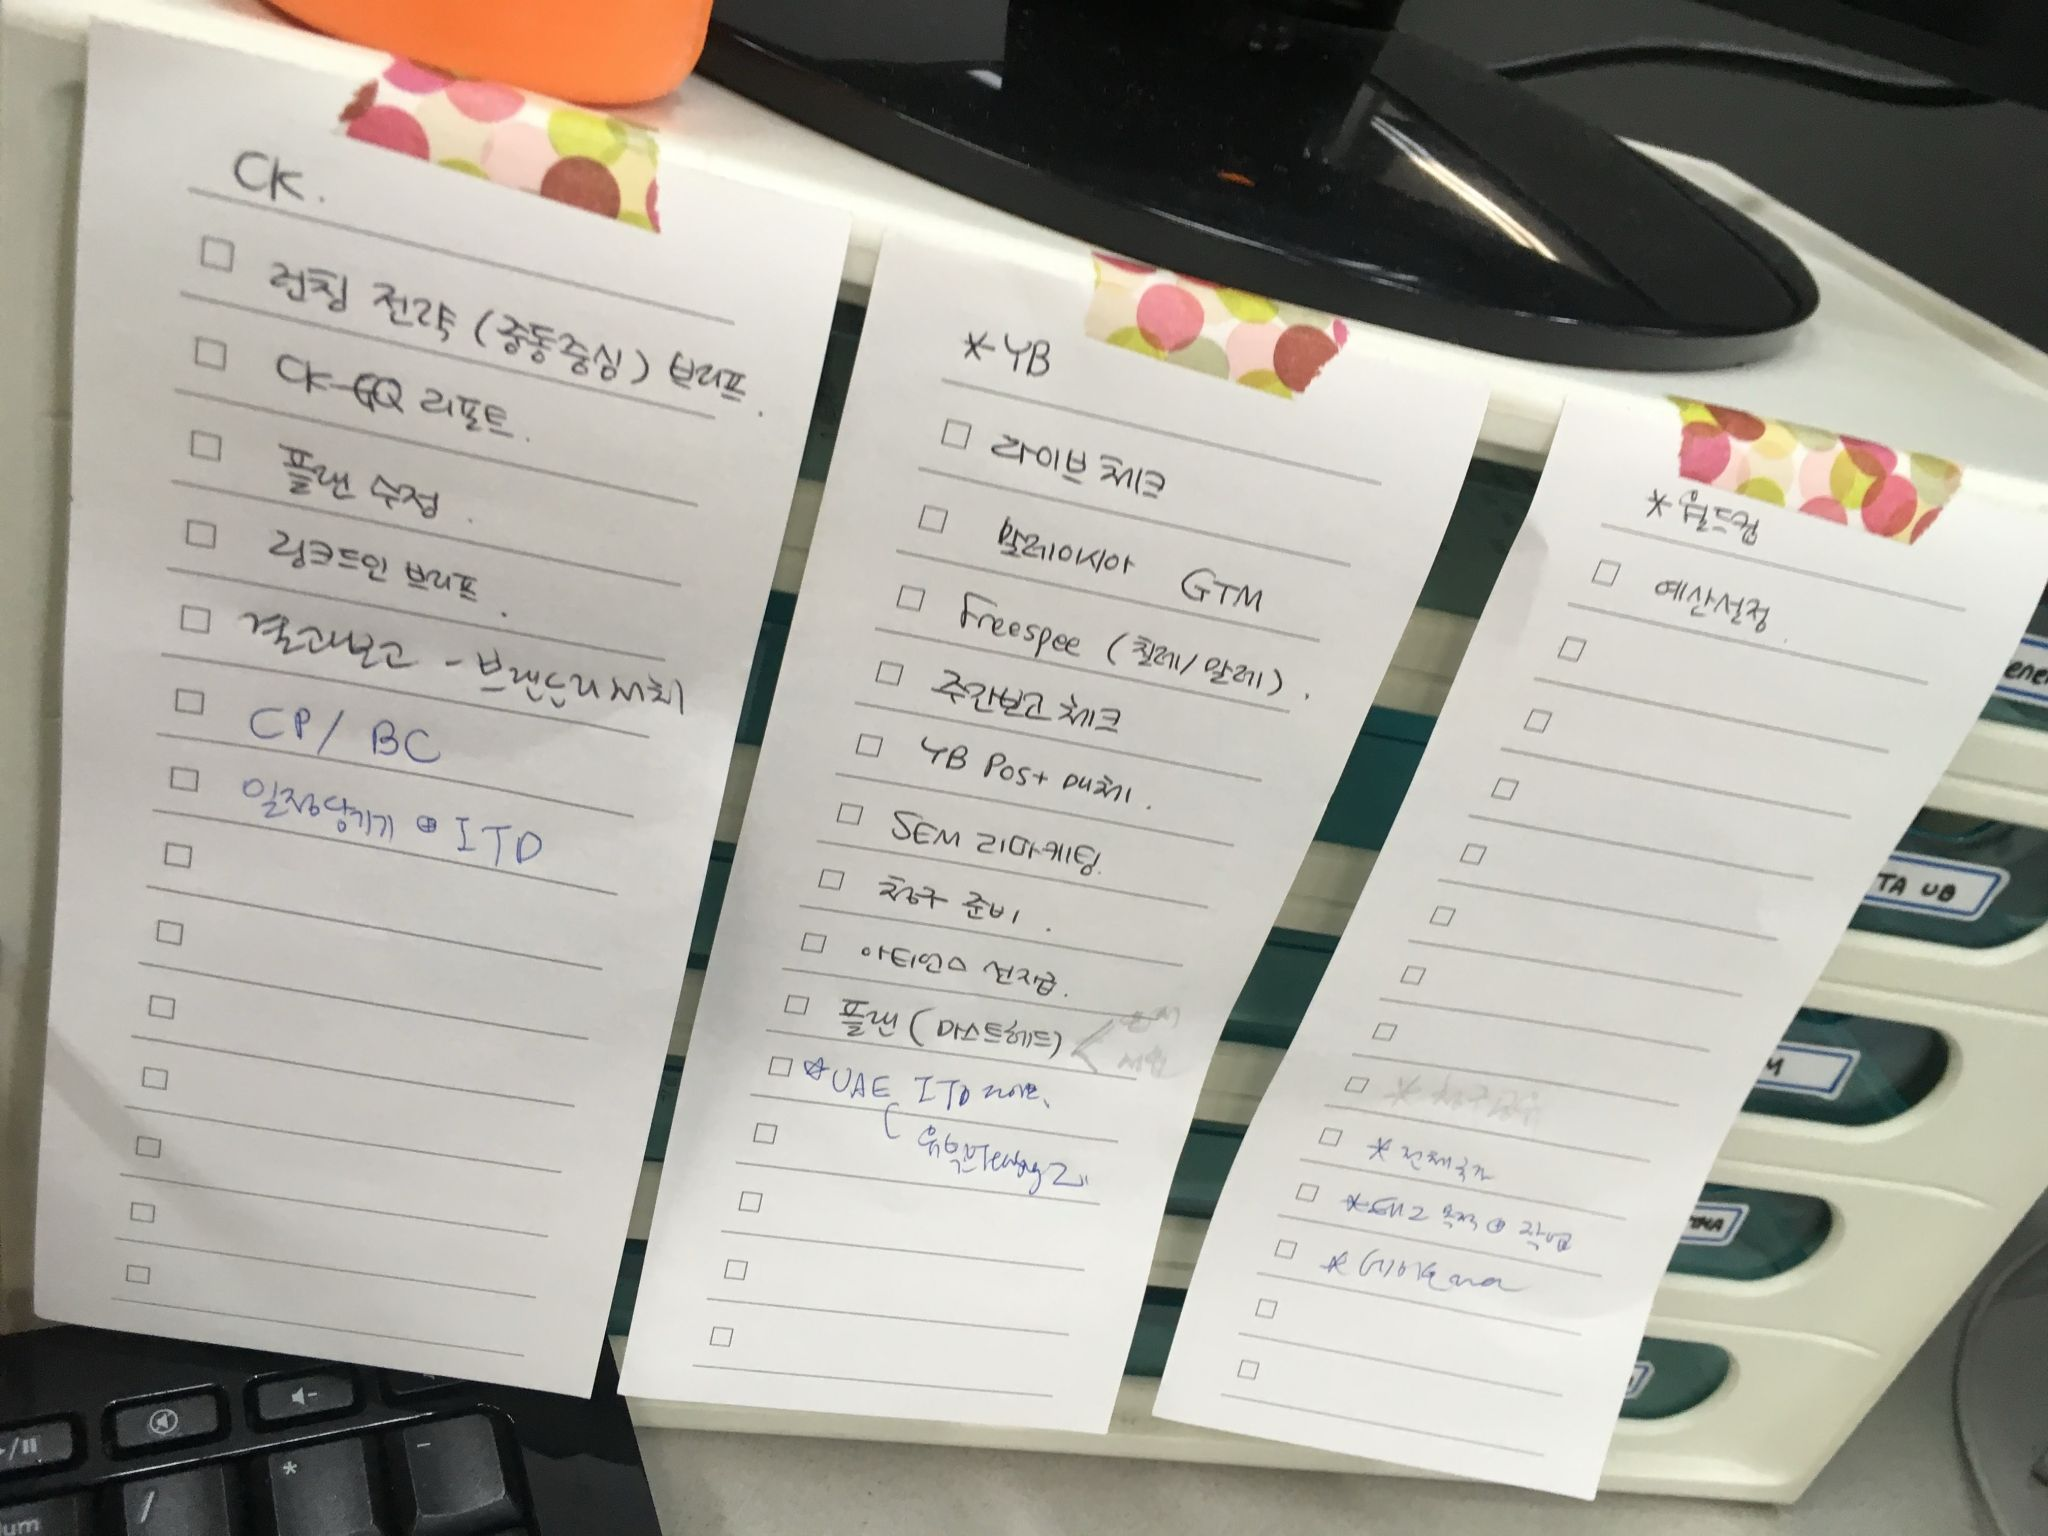 CK.
런칭 전략 (중동중심) 브리프.
CK-GQ 리포트.
플랜 수정.
링크드인 브리프.
결과보고 - 브랜드리서치
CP/ BC
일정당기기 ⊕ ITD
*YB
라이브 체크
말레이시아 GTM
Freespee (칠레/말레).
주간보고 체크
YB Post 매체.
SEM 리마케팅.
청구 준비.
아티언스 선지급.
플랜 (마스트헤드)
☆UAE ITD
*월드컵
예산설정.
*전체국가
*태그 목적 ⊕ 작업
*
TA UB